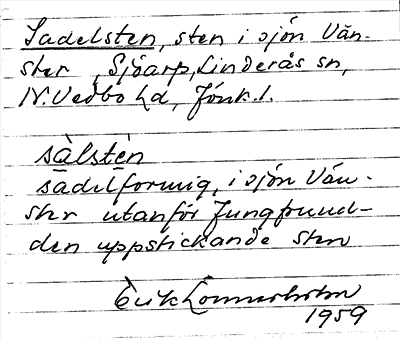 Sadelsten, sten i sjön Vän-
ster, Sjöarp, Linderås sn,
N. Vedbo hd, Jönk. l.
sàlstèn
sadelformig, i sjön Vän-
ster utanför Jungfruud-
den uppstickande sten
Erik Lönnerholm
1959